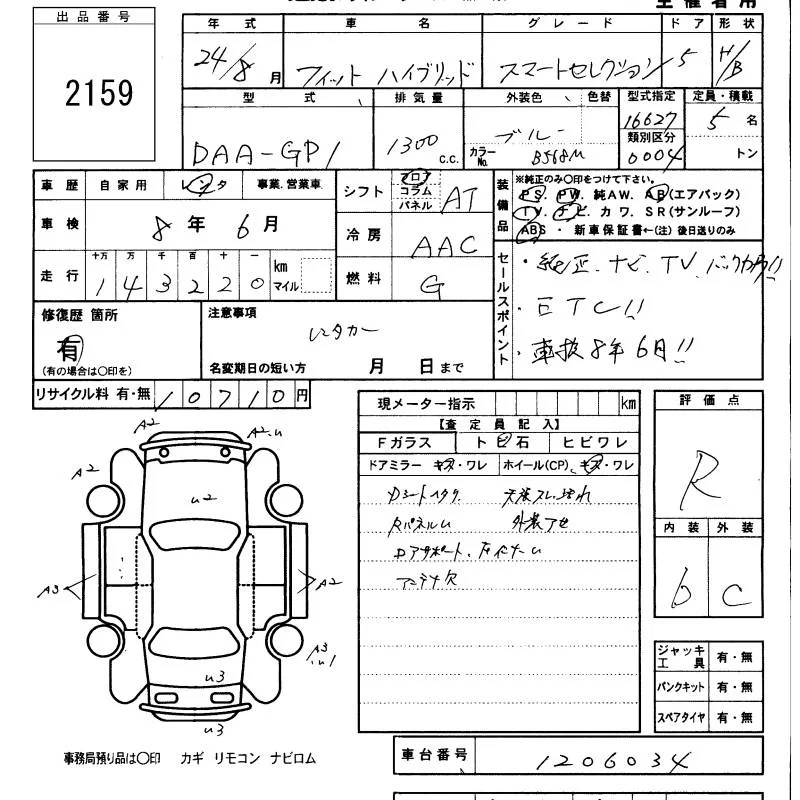 主催者用
出品番号
2159
年式 車名 グレード ドア 形状
24/8月 フィット ハイブリッド スマートセレクション 5 H/B
型式 排気量 外装色 色替 型式指定 定員・積載
DAA-GP1 1300 c.c. ブルー 16627 5名
カラーNo. B568M 類別区分 0004 トン
車歴 自家用 レンタ 事業.営業車
シフト フロア コラム パネル AT
装備品 ※純正のみ○印をつけて下さい。
PS. PW. 純AW. AB(エアバック)
TV. ナビ. カワ. SR(サンルーフ)
ABS ・ 新車保証書←(注)後日送りのみ
車検 8年6月
冷房 AAC
走行 十万 万 千 百 十 一 km マイル
143220
燃料 G
セールスポイント
・純正.ナビ.TV.バックカメラ!!
・ETC!!
・車検8年6月!!
修復歴 箇所
有
(有の場合は○印を)
注意事項
レンタカー
名変期日の短い方 月 日まで
リサイクル料 有・無 10710円
現メーター指示 km
【査定員記入】
Fガラス トビ石 ヒビワレ
ドアミラー キズ・ワレ ホイール(CP) キズ・ワレ
Dシート
RパネルU
アンテナ欠
評価点
R
内装 外装
b C
A2 A2.U
A2
U2
A3 A2
A3.U1
U3
U3
ジャッキ 工具 有・無
パンクキット 有・無
スペアタイヤ 有・無
事務局預り品は○印 カギ リモコン ナビロム
車台番号 1206034